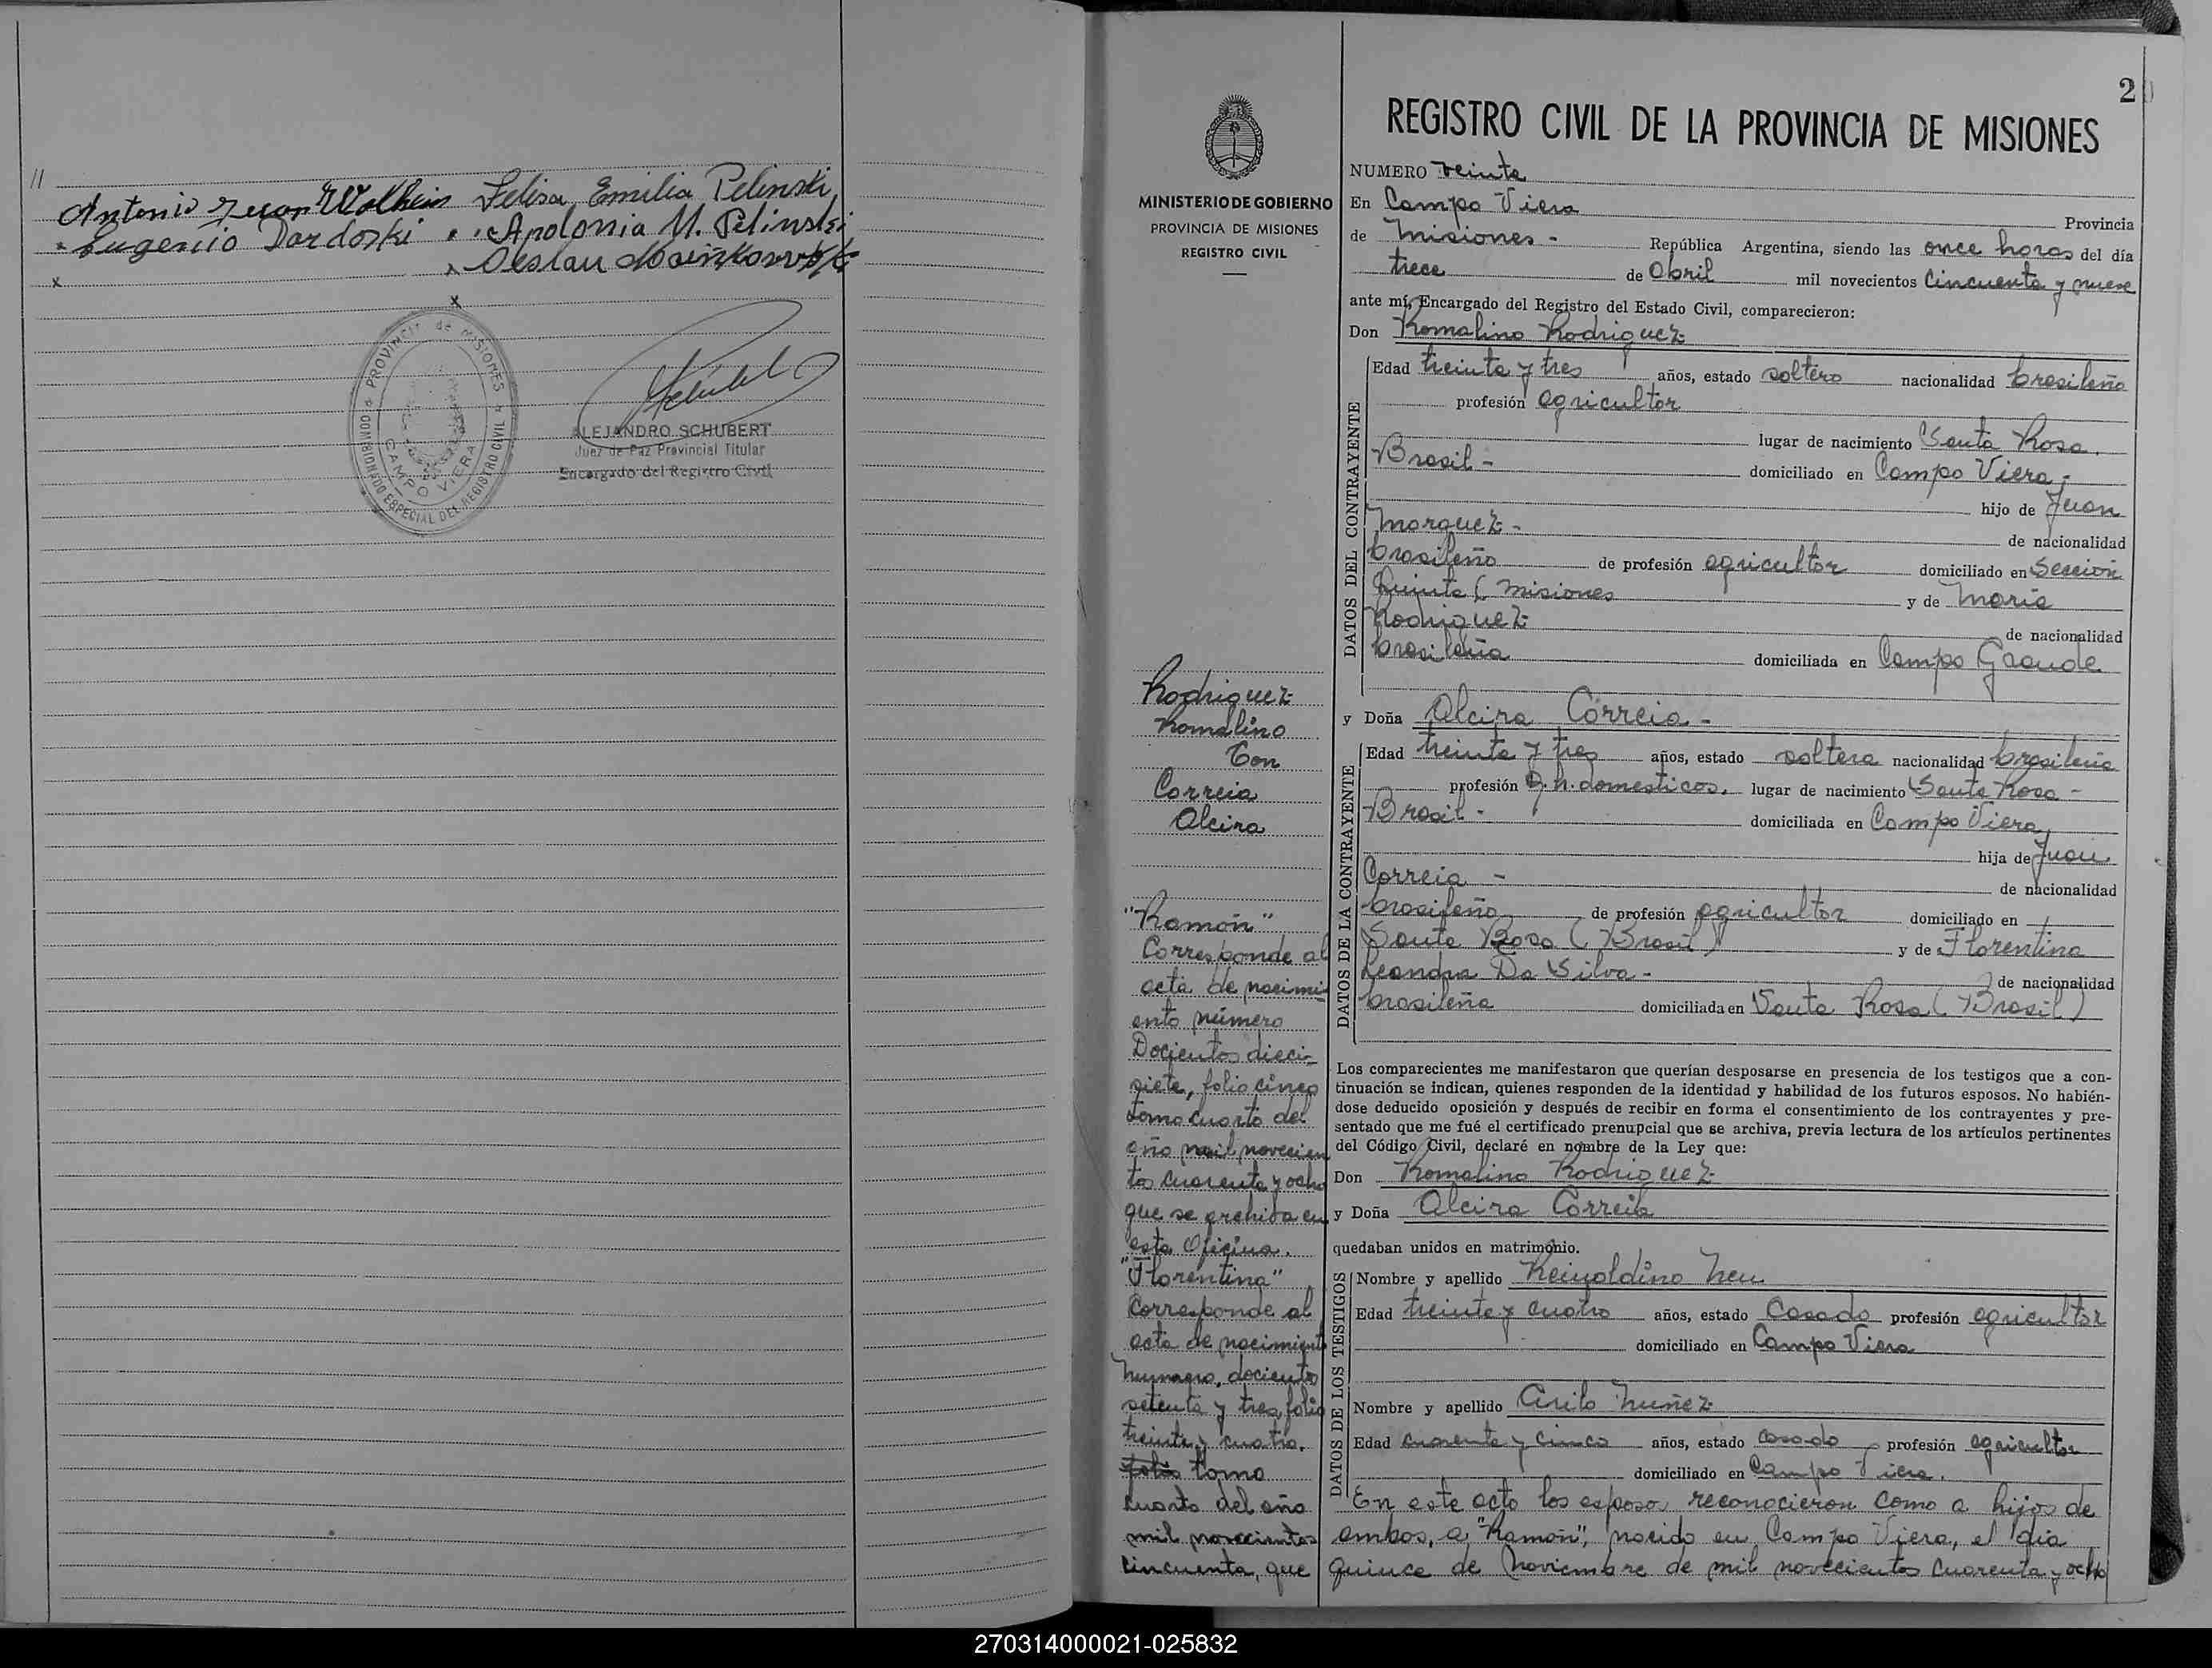 11
Antonio Juan Wolhein Felisa Emilia Pelinski
Eugenio Dardoski Apolonia M. Pelinski
x
x
PROVINCIA de MISIONES
COMISIONADO ESPECIAL DEL REGISTRO CIVIL
CAMPO VIERA
ALEJANDRO SCHUBERT
Juez de Paz Provincial Titular
Encargado del Registro Civil
2
MINISTERIO DE GOBIERNO
PROVINCIA DE MISIONES
REGISTRO CIVIL
Rodriguez
Romalino
Con
Correia
Alcira
"Ramón"
Corresponde al
acta de nacimi-
ento número
Docientos dieci-
siete, folio cinco
tomo cuarto del
año mil novecien
tos cuarenta y ocho
que se archiva en
esta Oficina.
"Florentina"
Corresponde al
acta de nacimiento
numero, docientos
setenta y tres folio
treinta y cuatro.
folio tomo
cuarto del año
mil novecientos
cincuenta, que
REGISTRO CIVIL DE LA PROVINCIA DE MISIONES
NUMERO veinte
En Campo Viera Provincia
de Misiones - República Argentina, siendo las once horas del día
trece de Abril mil novecientos cincuenta y nueve
ante mí, Encargado del Registro del Estado Civil, comparecieron:
Don Romalino Rodriguez
DATOS DEL CONTRAYENTE
Edad treinta y tres años, estado soltero nacionalidad brasileño
profesión agricultor
lugar de nacimiento Santa Rosa.
Brasil - domiciliado en Campo Viera,
hijo de Juan
Marquez - de nacionalidad
brasileño de profesión agricultor domiciliado en Sección
Quinta ( Misiones y de María
Rodriguez de nacionalidad
brasileña domiciliada en Campo Grande
y Doña Alcira Correia -
DATOS DE LA CONTRAYENTE
Edad treinta y tres años, estado soltera nacionalidad brasileña
profesión Q.h. domesticos. lugar de nacimiento Santa Rosa -
Brasil - domiciliada en Campo Viera,
hija de Juan
Correia - de nacionalidad
brasileño de profesión agricultor domiciliado en
Santa Rosa ( Brasil ) y de Florentina
Leandra Da Silva - de nacionalidad
brasileña domiciliada en Santa Rosa ( Brasil )
Los comparecientes me manifestaron que querían desposarse en presencia de los testigos que a con-
tinuación se indican, quienes responden de la identidad y habilidad de los futuros esposos. No habién-
dose deducido oposición y después de recibir en forma el consentimiento de los contrayentes y pre-
sentado que me fué el certificado prenupcial que se archiva, previa lectura de los artículos pertinentes
del Código Civil, declaré en nombre de la Ley que:
Don Romalino Rodriguez
y Doña Alcira Correia
quedaban unidos en matrimonio.
DATOS DE LOS TESTIGOS
Nombre y apellido Reinoldino Neu
Edad treinta y cuatro años, estado Casado profesión agricultor
domiciliado en Campo Viera
Nombre y apellido Cirilo Nuñez
Edad cuarenta y cinco años, estado casado profesión agricultor
domiciliado en Campo Viera.
En este acto los esposos reconocieron como a hijos de
ambos, a "Ramón", nacido en Campo Viera, el día
quince de Noviembre de mil novecientos cuarenta y ocho
270314000021-025832